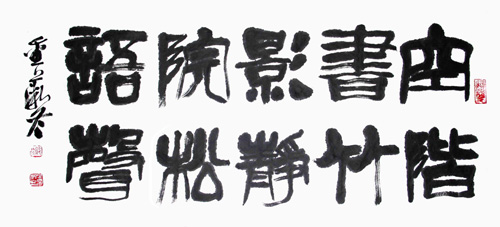 空階
書竹
影靜
院松
語聲